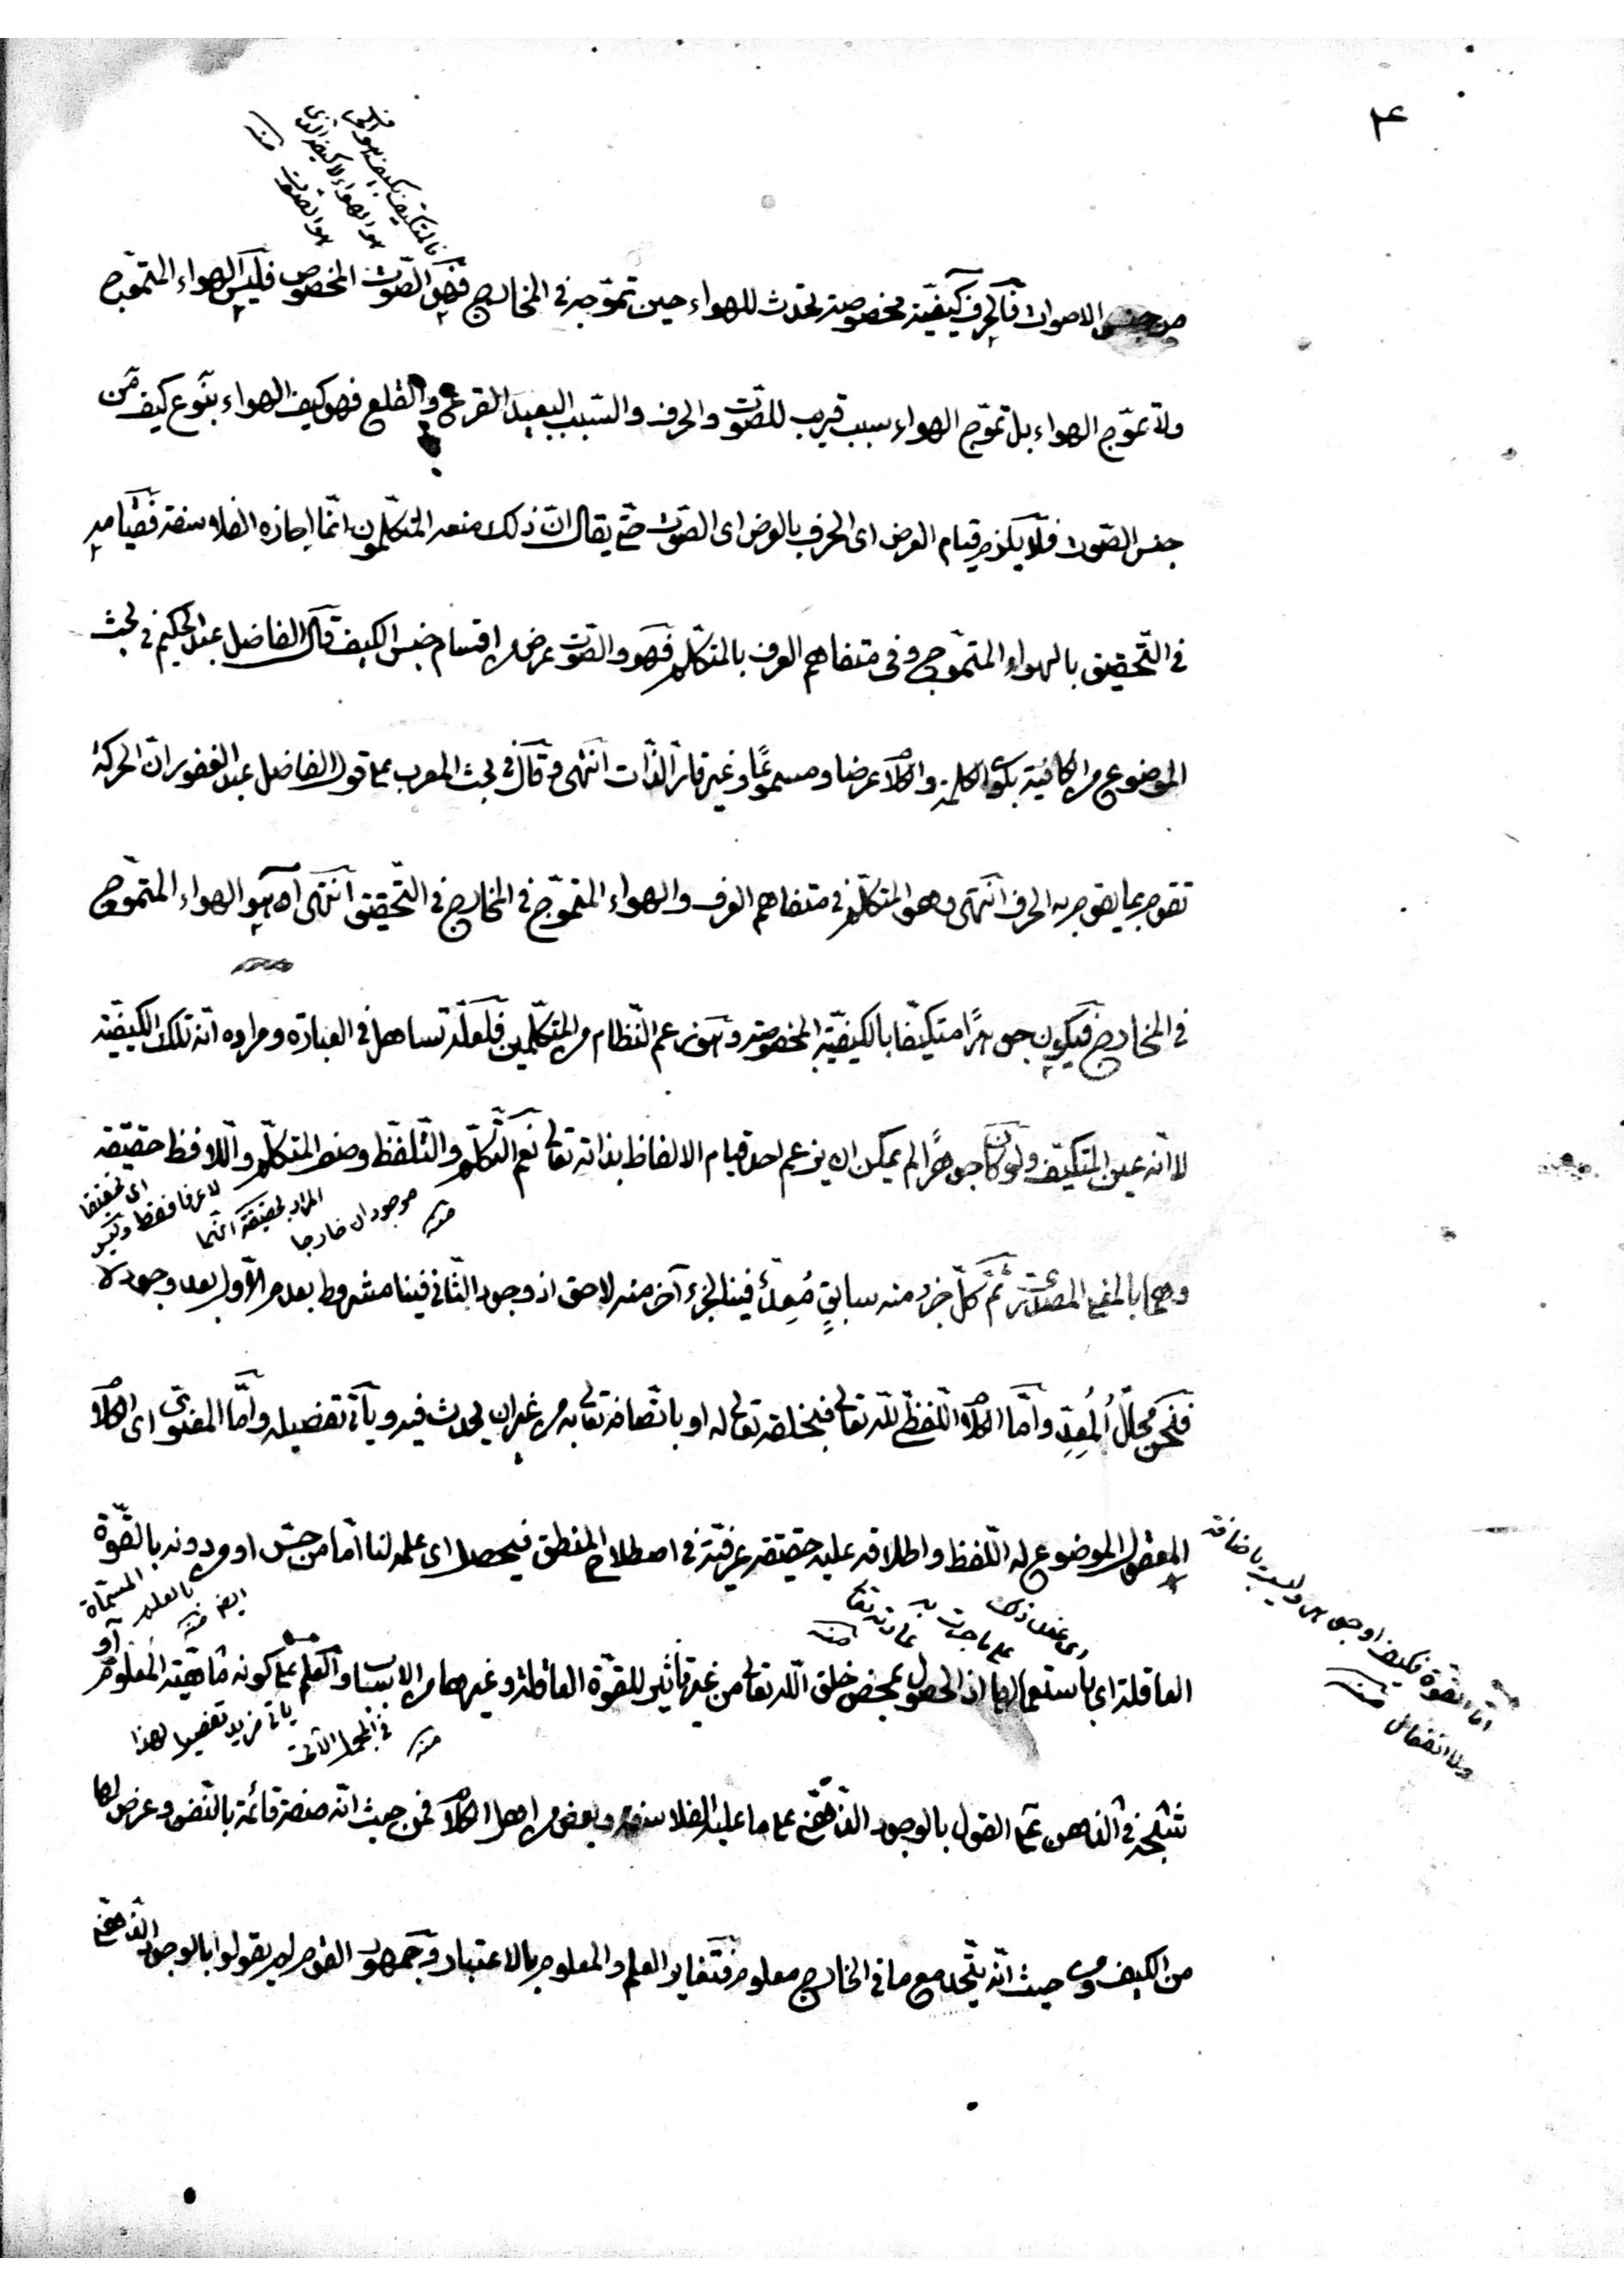 ٤
من جنس الاصوات فالحرف كيفيّة مخصوصة تحدث للهواء حين تموّجه في المخارج فهى الصّوت المخصوص فليس الهواء المتموّج
ولا تموّج الهواء بل تموّج الهواء سبب قريب للصّوت والحرف والسّبب البعيد القرع والقلع فهو كيف الهواء بنوع كيف من
جنس الصّوت فلا يلزم قيام العرض اى الحرف بالعرض اى الصّوت حتّى يقال انّ ذلك منعه المتكلّمون انّما اجازه الفلاسفة فقيامه
في التّحقيق بالهواء المتموّج وفى متفاهم العرف بالمتكلّم فهو والصّوت عرض من اقسام جنس الكيف قال الفاضل عبد الحكيم في بحث
الموضوع من الكافية بكون الكلمة والكلام عرضا ومسموعًا وغير قارّ الذّات انتهى وقال في بحث المعرب على قول الفاضل عبد الغفور انّ الحركة
تقوم بما يقوم به الحرف انتهى وهو المتكلّم في متفاهم العرف والهواء المتموّج في المخارج في التّحقيق انتهى او هو الهواء المتموّج
في المخارج فيكون جوهرًا متكيّفا بالكيفيّة المخصوصة وهو زعم النّظام من المتكلّمين فلعلّه تساهل في العبارة ومراده انّه تلك الكيفيّة
لا انّه عين المتكيّف ولو كان جوهرًا لم يمكن ان يزعم احد قيام الالفاظ بذاته تعالى نعم التّكلّم والتّلفّظ وصف المتكلّم واللّافظ حقيقة
لا عرفا فقط وليس
المراد بحقيقة انّهما
موجودان خارجا
منه
وهما بالمعنى المصدرىّ ثمّ كلّ جزء منه سابقٍ مُعِدّ فينا لجزء آخر منه لاحق اذ وجود الثّانى فينا مشروط بعدم الاوّل بعد وجوده
فنحن محلّ المُعِدّ وامّا الكلام اللّفظىّ للّه تعالى فبخلقه تعالى له او باتّصافه تعالى به من غير ان يحدث فيه ويأتى تفصيله وامّا المعنوىّ اى الكلام
المعقول الموضوع له اللّفظ واطلاقه عليه حقيقة عرفيّة في اصطلاح المنطق فيحصل اى علمه لنا امّا من حسّ او من دونه بالقوّة
المسمّاة
بالعقل
ايضا منه
العاقلة اى باستعمالها اذ الحصول بمحض خلق اللّه تعالى من غير تأثير للقوّة العاقلة وغيرها من الاسباب والعلم على كونه ماهيّة المعلوم
يأتى مزيد تفصيل لهذا
منه
تتّحد في الذّهن على القول بالوجود الذّهنىّ على ما عليه الفلاسفة وبعض من اهل الكلام فمن حيث انّه صفة قائمة بالنّفس وعرض لها
من الكيف ومن حيث انّه يتّحد مع ما في الخارج معلوم فتغاير العلم والمعلوم بالاعتبار وجمهور القوم لم يقولوا بالوجود الذّهنىّ